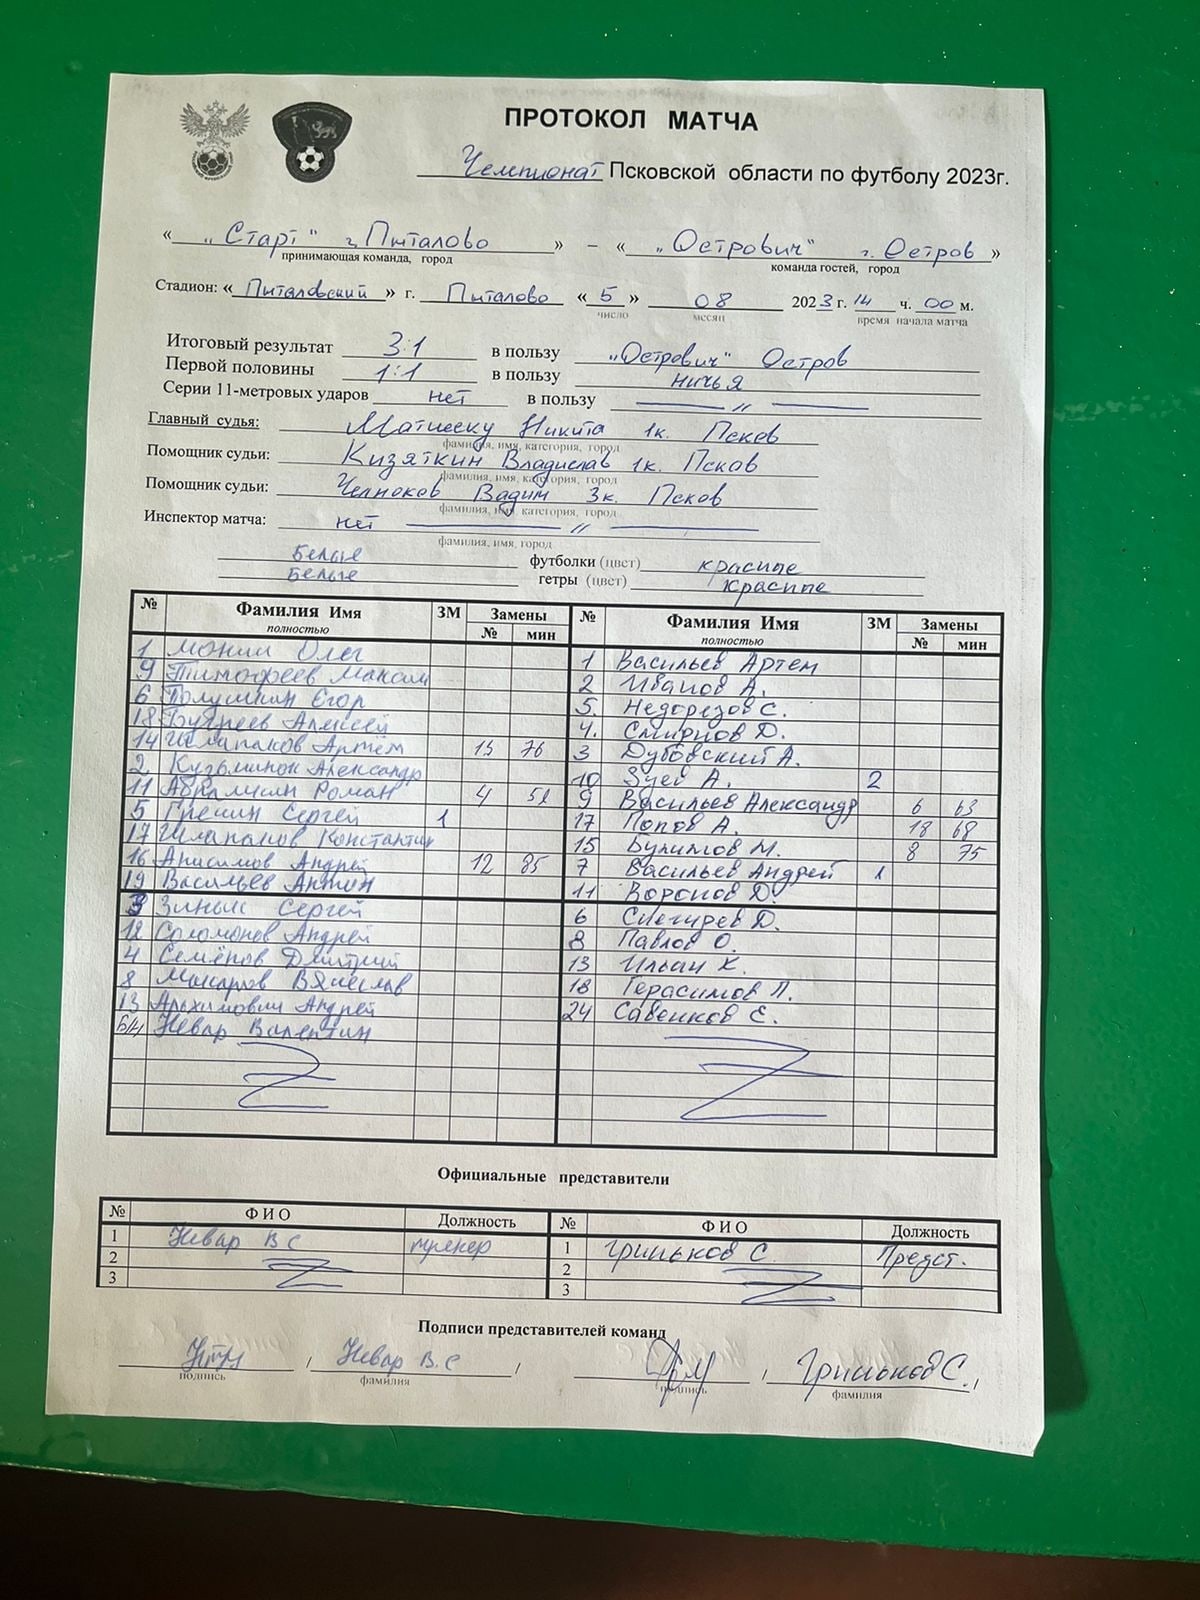 ПРОТОКОЛ МАТЧА
Чемпионат Псковской области по футболу 2023г.
« „Старт" г. Пыталово » – « „Острович" г. Остров »
принимающая команда, город команда гостей, город
Стадион: « Пыталовский » г. Пыталово « 5 » 08 2023 г. 14 ч. 00 м.
число месяц время начала матча
Итоговый результат 3:1 в пользу „Острович" Остров
Первой половины 1:1 в пользу ничья
Серии 11-метровых ударов нет в пользу — // —
Главный судья: Матиеску Никита 1к. Псков
фамилия, имя, категория, город
Помощник судьи: Кизяткин Владислав 1к. Псков
фамилия, имя, категория, город
Помощник судьи: Челноков Вадим 3к. Псков
фамилия, имя, категория, город
Инспектор матча: нет — // —
фамилия, имя, город
Белые футболки (цвет) красные
Белые гетры (цвет) красные
№ Фамилия Имя ЗМ Замены № Фамилия Имя ЗМ Замены
полностью № мин полностью № мин
1 Олег 1 Васильев Артем
9 Тимофеев Максим 2 Иванов А.
6 Полушкин Егор 5. Недорезов С.
18 Алексей 4. Смирнов Д.
14 Шлапаков Артём 15 76 3 Дубовский А.
2 Александр 10 Зуев А. 2
11 Абрамян Роман 4 51 9 Васильев Александр 6 63
5 Гречин Сергей 1 17 Попов А. 18 68
17 Константин 15 М. 8 75
16 Анисимов Андрей 12 85 7 Васильев Андрей 1
19 Васильев Антон 11 Воронов Д.
3 Сергей 6 Снегирев Д.
12 Соломонов Андрей 8 Павлов О.
4 Семёнов Дмитрий 13 Ильин К.
8 Макаров Вячеслав 18 Герасимов П.
13 Альхимович Андрей 24 Савенков Е.
б/н Невар Валентин
Официальные представители
№ Ф И О Должность № Ф И О Должность
1 Невар В С тренер 1 Гриньков С. Предст.
2 2
3 3
Подписи представителей команд
, Невар В.С , , Гриньков С. ,
подпись фамилия подпись фамилия